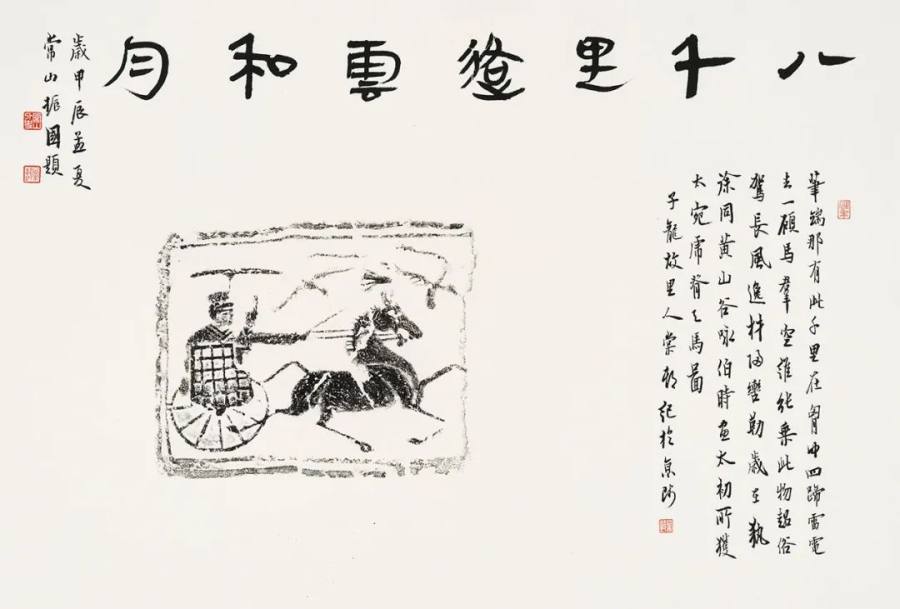 八千里路雲和月
筆端那有此千里在胸中四蹄雷電
去一顧馬羣空誰能乘此物超俗
駕長風逸材歸轡勒歲在執
徐同黃山谷詠伯時畫太初所獲
大宛虎脊天馬圖
子龍故里人記於京師
歲甲辰孟夏
常山振國題